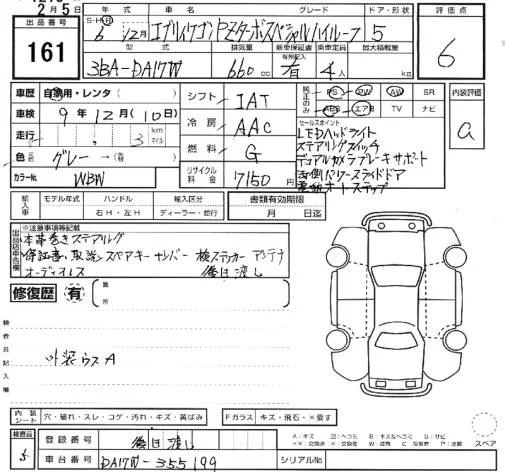 2月5日
出品番号 161
年式 S・H・R 6年 12月
車名 エブリィワゴン
グレード PZターボスペシャル ハイルーフ
ドア・形状 5
評価点 6
型式 3BA-DA17W
排気量 660 cc
新車保証書 有無記入 有
乗車定員 4人
最大積載量 kg
車歴 自家用・レンタ
車検 9年12月(10日)
走行 3 km マイル
色 グレー →(替)
カラーNo. WBW
シフト IAT
冷房 AAC
燃料 G
リサイクル料金 7150円
純正のみ PS PW AW SR
ABS エアB TV ナビ
内装評価 a
セールスポイント
LEDヘッドライト
ステアリングスイッチ
デュアルカメラブレーキサポート
両側パワースライドドア
電動オートステップ
輸入車 モデル年式 ハンドル 右H・左H 輸入区分 ディーラー・並行
書類有効期限 月 日迄
出品店申告欄 ※注意事項等記載
本革巻きステアリング
保証書、取説、スペアキー ナンバー 検ステッカー アンテナ
オーディオレス 後日渡し
修復歴 有 箇所
検査員記入欄
外装ウスA
内装シート 穴・破れ・スレ・コゲ・汚れ・キズ・黄ばみ
Fガラス キズ・飛石・×要す
検査員
登録番号 後日渡し
車台番号 DA17W-355199
シリアルNo.
A:キズ U:ヘコミ B:キズ&ヘコミ S:サビ
スペア